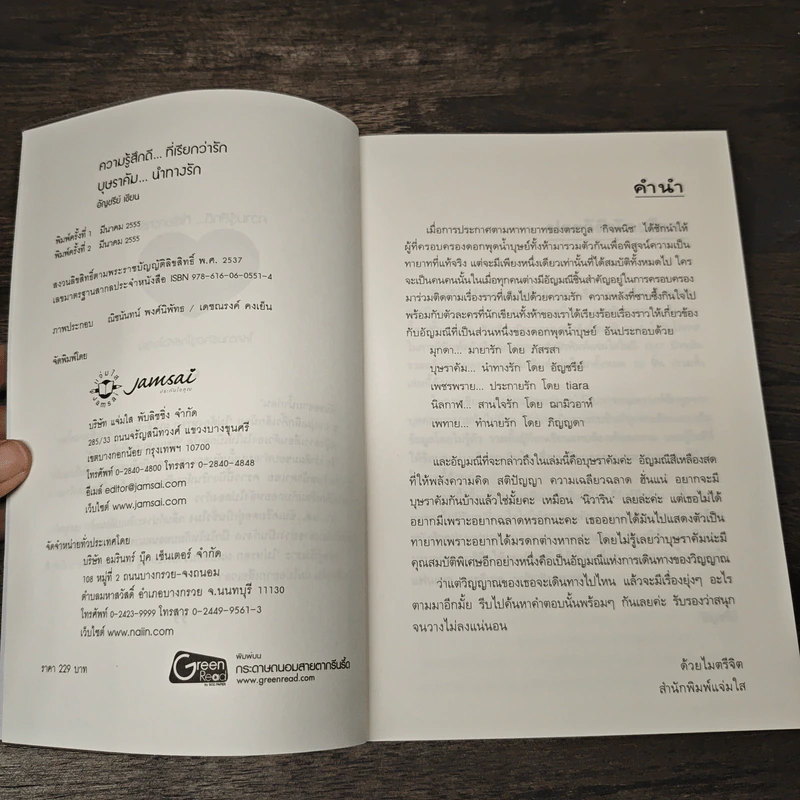 ความรู้สึกดี... ที่เรียกว่ารัก
บุษราคัม... นำทางรัก
อัญชรีย์ เขียน
พิมพ์ครั้งที่ 1 มีนาคม 2555
พิมพ์ครั้งที่ 2 มีนาคม 2555
สงวนลิขสิทธิ์ตามพระราชบัญญัติลิขสิทธิ์ พ.ศ. 2537
เลขมาตรฐานสากลประจำหนังสือ ISBN 978-616-06-0551-4
ภาพประกอบ ณิชนันทน์ พงศ์นิพัทธ / เดชณรงค์ คงเย็น
จัดพิมพ์โดย
แจ่มใส
Jamsai
jamsai
บริษัท แจ่มใส พับลิชชิ่ง จำกัด
285/33 ถนนจรัญสนิทวงศ์ แขวงบางขุนศรี
เขตบางกอกน้อย กรุงเทพฯ 10700
โทรศัพท์ 0-2840-4800 โทรสาร 0-2840-4848
อีเมล์ editor@jamsai.com
เว็บไซต์ www.jamsai.com
จัดจำหน่ายทั่วประเทศโดย
บริษัท อมรินทร์ บุ๊ค เซ็นเตอร์ จำกัด
108 หมู่ที่ 2 ถนนบางกรวย-จงถนอม
ตำบลมหาสวัสดิ์ อำเภอบางกรวย จ.นนทบุรี 11130
โทรศัพท์ 0-2423-9999 โทรสาร 0-2449-9561-3
เว็บไซต์ www.naiin.com
ราคา 229 บาท
Green Read
พิมพ์บน
กระดาษถนอมสายตากรีนรี้ด
www.greenread.com
คำนำ
เมื่อการประกาศตามหาทายาทของตระกูล 'กิจพนิช' ได้ชักนำให้
ผู้ที่ครอบครองดอกพุดน้ำบุษย์ทั้งห้ามารวมตัวกันเพื่อพิสูจน์ความเป็น
ทายาทที่แท้จริง แต่จะมีเพียงหนึ่งเดียวเท่านั้นที่ได้สมบัติทั้งหมดไป ใคร
จะเป็นคนคนนั้นในเมื่อทุกคนต่างมีอัญมณีชิ้นสำคัญอยู่ในการครอบครอง
มาร่วมติดตามเรื่องราวที่เต็มไปด้วยความรัก ความหลังที่ซาบซึ้งกินใจไป
พร้อมกับตัวละครที่นักเขียนทั้งห้าของเราได้เรียงร้อยเรื่องราวให้เกี่ยวข้อง
กับอัญมณีที่เป็นส่วนหนึ่งของดอกพุดน้ำบุษย์ อันประกอบด้วย
มุกดา... มายารัก โดย ภัสรสา
บุษราคัม... นำทางรัก โดย อัญชรีย์
เพชรพราย... ประกายรัก โดย tiara
นิลกาฬ... สานใจรัก โดย ฌามิวอาห์
เพทาย... ทำนายรัก โดย ภิญญดา
และอัญมณีที่จะกล่าวถึงในเล่มนี้คือบุษราคัมค่ะ อัญมณีสีเหลืองสด
ที่ให้พลังความคิด สติปัญญา ความเฉลียวฉลาด ฮั่นแน่ อยากจะมี
บุษราคัมกันบ้างแล้วใช่มั้ยคะ เหมือน 'นิวาริน' เลยล่ะค่ะ แต่เธอไม่ได้
อยากมีเพราะอยากฉลาดหรอกนะคะ เธออยากได้มันไปแสดงตัวเป็น
ทายาทเพราะอยากได้มรดกต่างหากล่ะ โดยไม่รู้เลยว่าบุษราคัมน่ะมี
คุณสมบัติพิเศษอีกอย่างหนึ่งคือเป็นอัญมณีแห่งการเดินทางของวิญญาณ
ว่าแต่วิญญาณของเธอจะเดินทางไปไหน แล้วจะมีเรื่องยุ่งๆ อะไร
ตามมาอีกมั้ย รีบไปค้นหาคำตอบนั้นพร้อมๆ กันเลยค่ะ รับรองว่าสนุก
จนวางไม่ลงแน่นอน
ด้วยไมตรีจิต
สำนักพิมพ์แจ่มใส